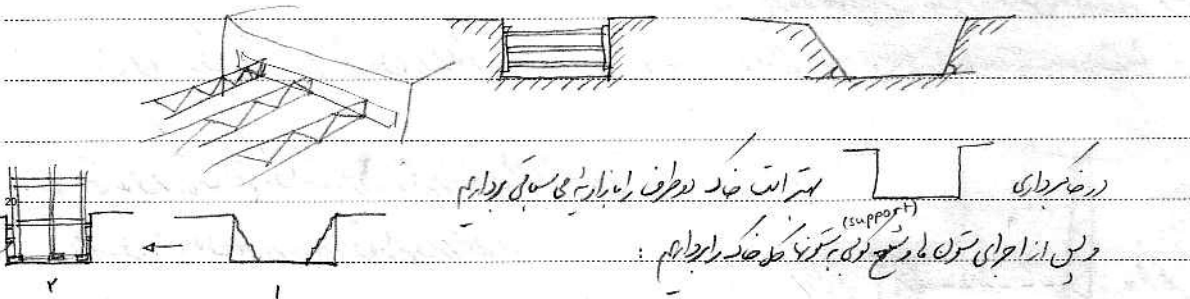 در خاکبرداری بهتر است خاک دو طرف را با زاویه‌ی مناسبی برداریم
(support)
و پس از اجرای ستون ها و شمع کوبی به ستونها کل خاک را برداریم :
20
۲ ۱